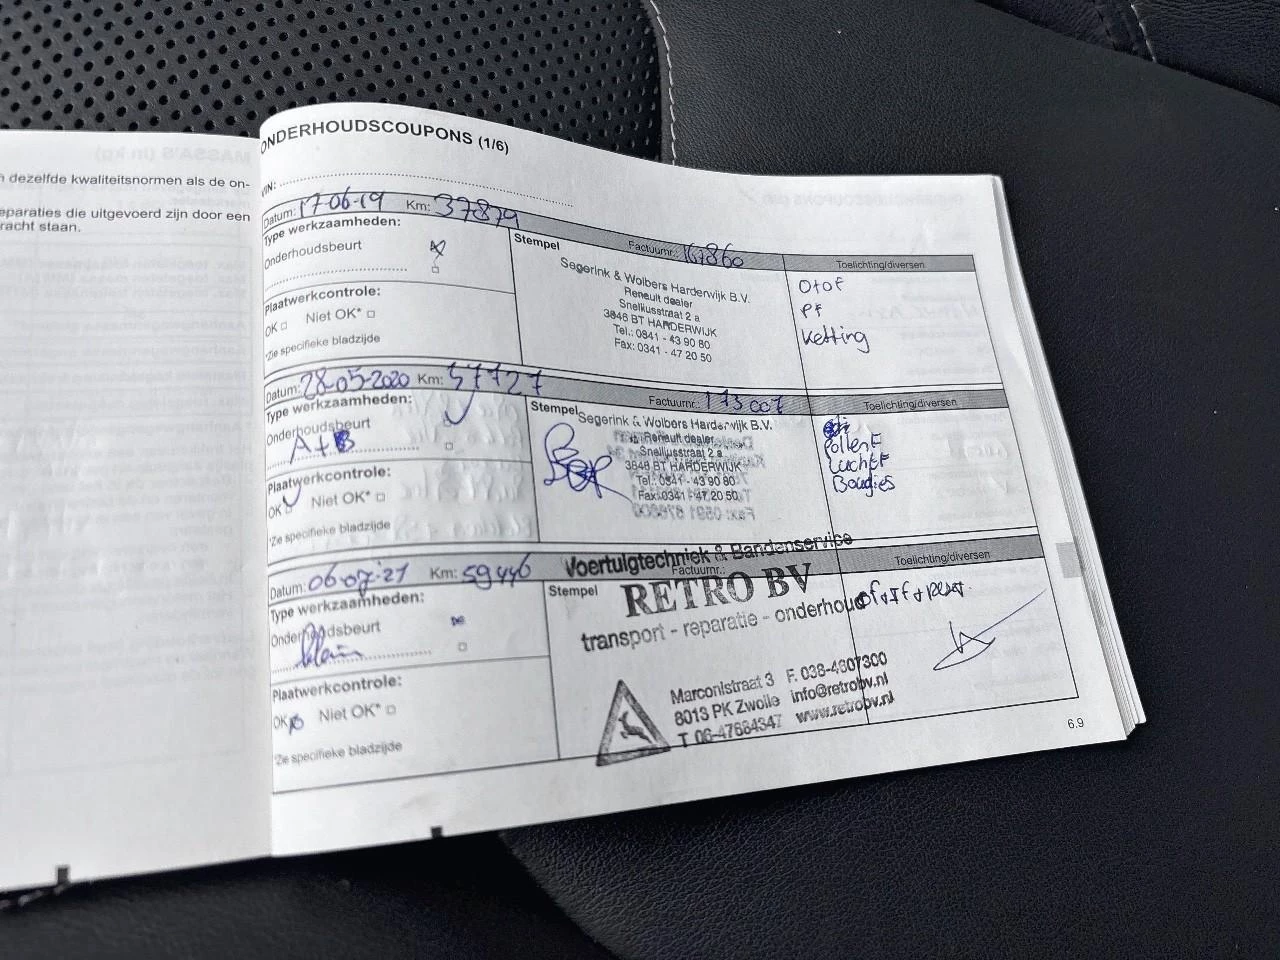 n dezelfde kwaliteitsnormen als de on-
eparaties die uitgevoerd zijn door een
racht staan.
ONDERHOUDSCOUPONS (1/6)
VIN:
Datum: 17-06-19 Km: 37879
Factuurnr.: 167860
Type werkzaamheden:
Stempel
Toelichting/diversen
Onderhoudsbeurt
Segerink & Wolbers Harderwijk B.V.
Renault dealer
Snelliusstraat 2 a
3846 BT HARDERWIJK
Tel.: 0341 - 43 90 80
Fax: 0341 - 47 20 50
Plaatwerkcontrole:
OK Niet OK*
*Zie specifieke bladzijde
O+of
Pf
Ketting
Datum: 28-05-2020 Km: 57727
Factuurnr.: 173007
Type werkzaamheden:
Stempel
Toelichting/diversen
Onderhoudsbeurt
A+B
Segerink & Wolbers Harderwijk B.V.
Renault dealer
Snelliusstraat 2 a
3846 BT HARDERWIJK
Tel.: 0341 - 43 90 80
Fax: 0341 - 47 20 50
Plaatwerkcontrole:
OK Niet OK*
*Zie specifieke bladzijde
Pollen F
Lucht F
Bougies
Datum: 06-07-'21 Km: 59446
Factuurnr.:
Type werkzaamheden:
Stempel
Toelichting/diversen
Onderhoudsbeurt
klein
Voertuigtechniek & Bandenservice
RETRO BV
transport - reparatie - onderhoud
Marconistraat 3 F. 038-4607300
8013 PK Zwolle info@retrobv.nl
T 06-47684347 www.retrobv.nl
Plaatwerkcontrole:
OK Niet OK*
*Zie specifieke bladzijde
of+If+reset.
6.9